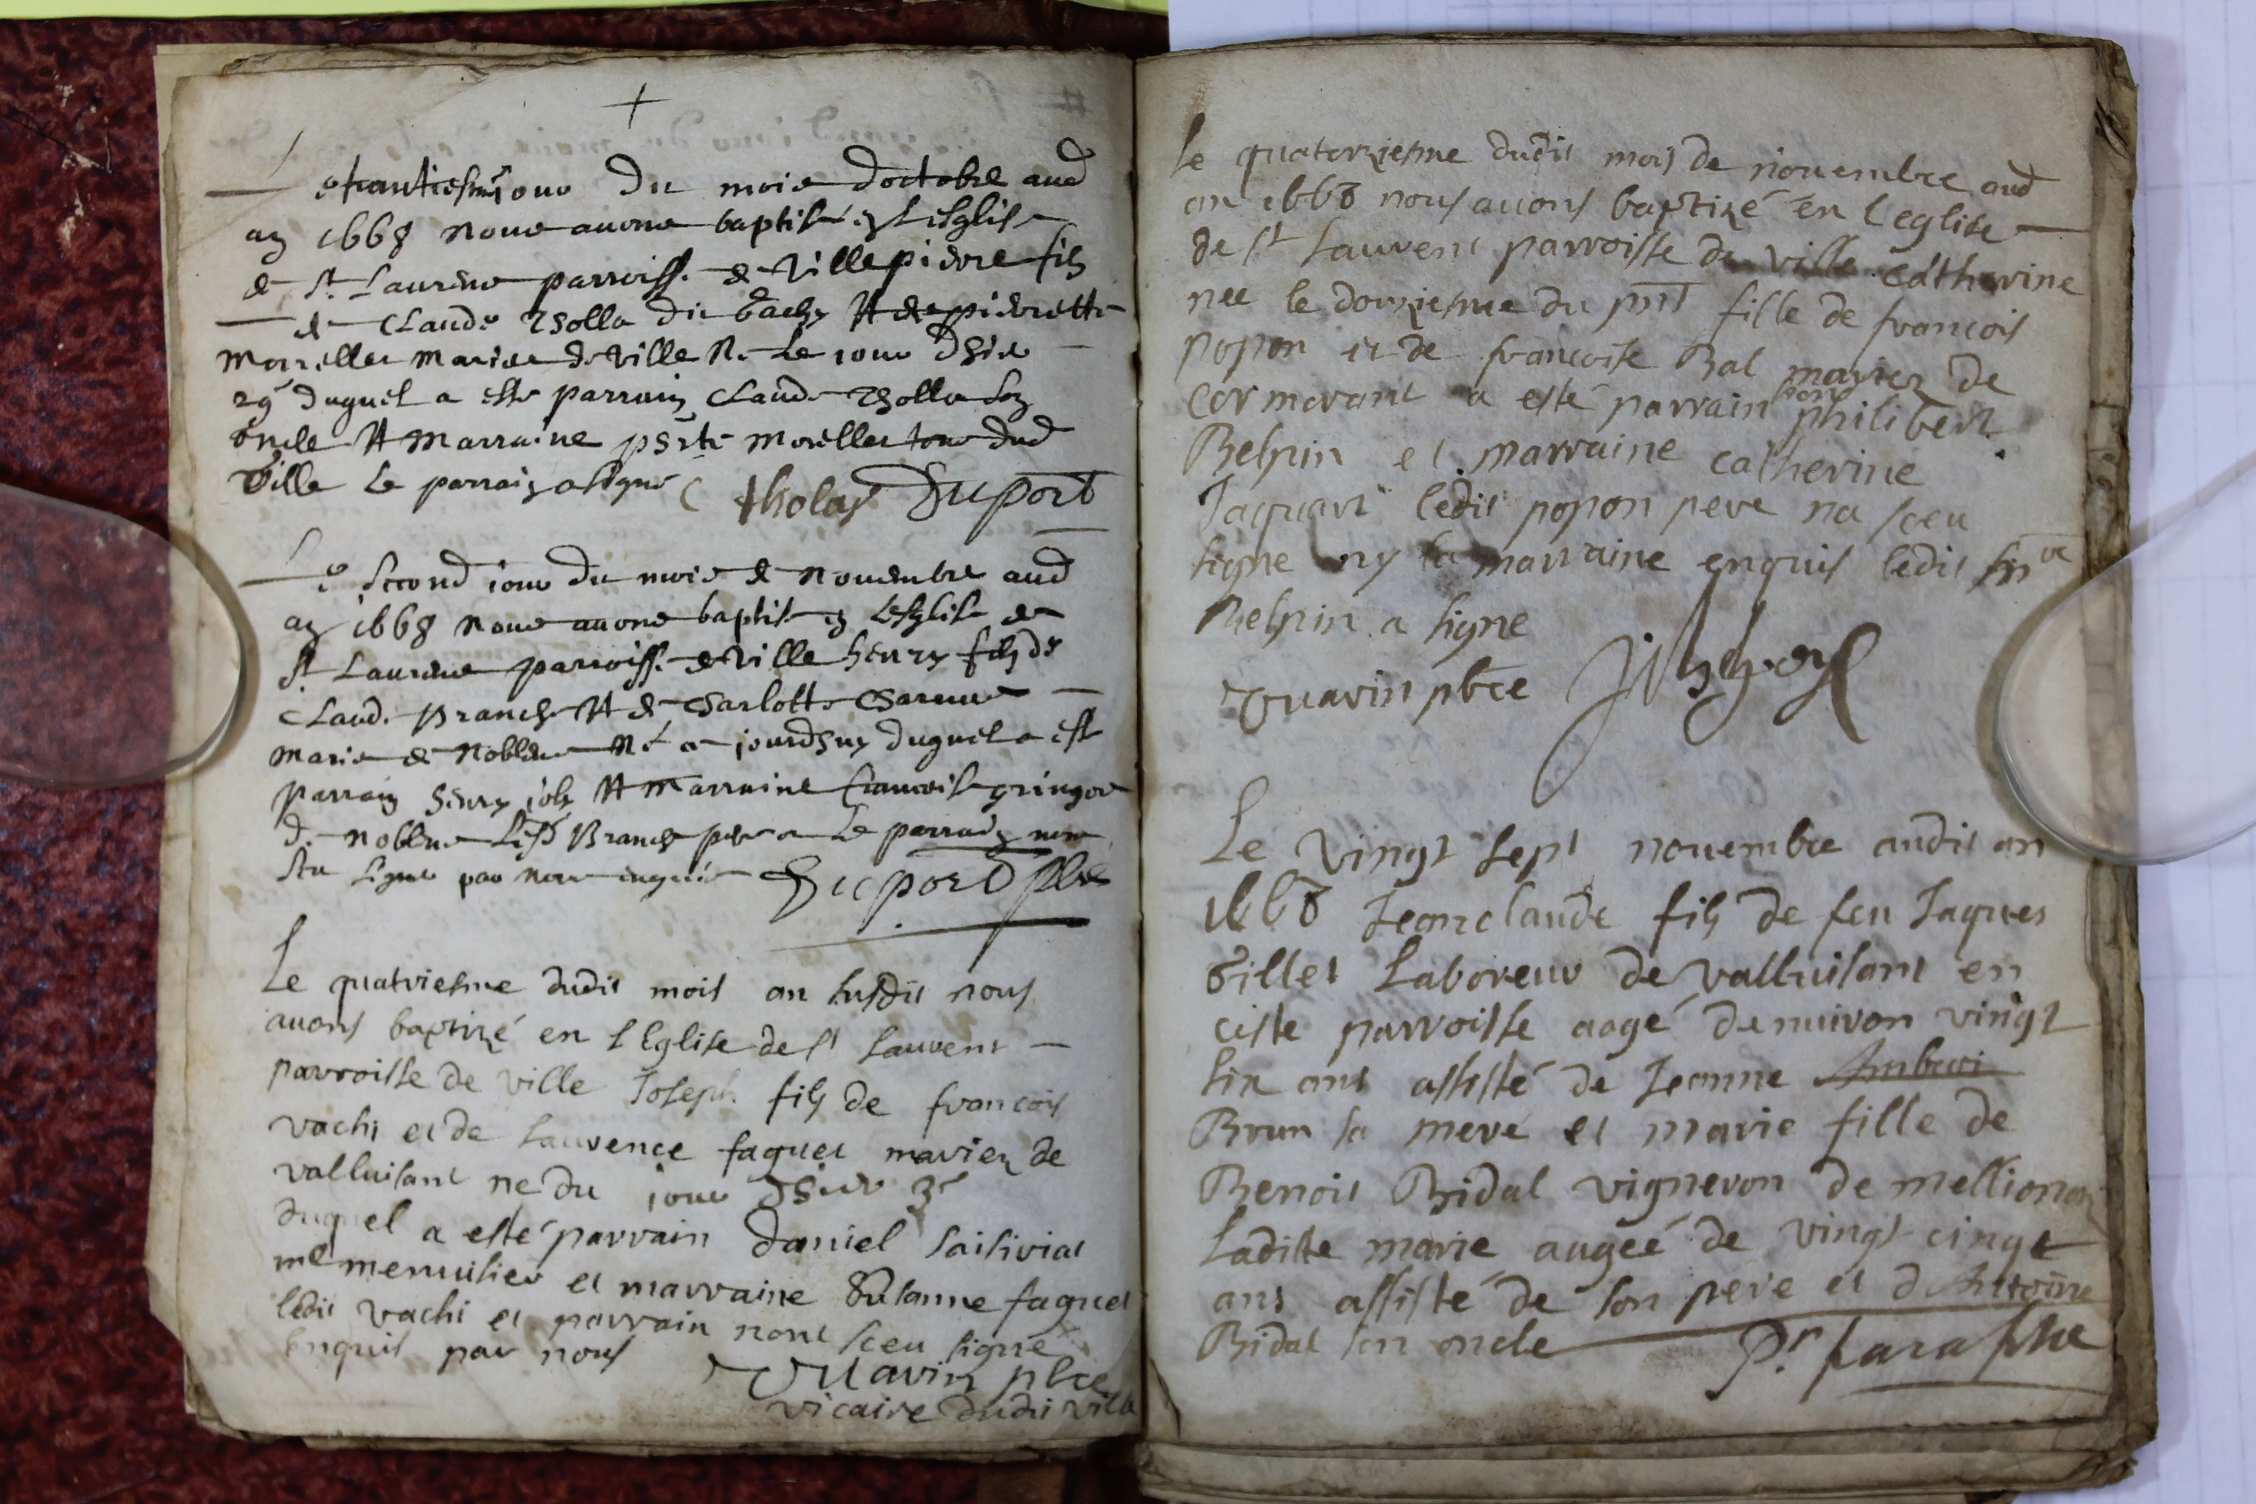 Le trantiesme jour du mois doctobre aud
an 1668 nous avons baptisé en lesglise
de St Laurens parroisse de Ville pierre fils
de Claude Tholla dit et de pierrette
Morellet mariez de Ville né le jour dhier
29 duquel a este parrain Claude Tholla son
oncle et marraine morellet tous dud
Ville le parrain a signé C tholas Duport
Le second jour du mois de novembre aud
an 1668 nous avons baptisé en lesglise de
St Laurens parroisse de Ville henry fils de
Claude Branche et de Charlotte
mariez de Noblens né ce jourdhuy duquel a esté
parrain henry joly et marraine francoise gringoz
de noblens led Branche pere et le parrain nont
sceu signé par nous enquis Duport pbre
Le quatriesme dudit mois an susdit nous
avons baptizé en l Eglise de St Laurent
parroisse de ville Joseph fils de francois
vachi et de Laurence faguet mariez de
valluisant ne du jour dhier 3e
duquel a esté parrain daniel
me menuisier et marraine Susanne faguet
ledit vachi et parrain nont sceu signé
enquis par nous
Vuarin pbre
vicaire dudit ville
le quatorziesme dudit mois de novembre aud
an 1668 nous avons baptizé en l eglise
de St Laurent parroisse de ville catherine
nee le douziesme du pnt fille de francois
popon et de francoise Bal mariez de
Cormorant a esté parrain hon philibert
Belpin et marraine catherine
Jaquart ledit popon pere na sceu
signe ny la marraine enquis ledit
Belpin a signe
Vuarin pbre
Le vingt sept novembre audit an
1668 Jeanclaude fils de feu Jaques
Billet Laboreur de valluisant en
ceste parroisse aagé denuiron vingt
six ans assisté de Jeanne
Brun sa mere et marie fille de
Benoit Bidal vigneron de mellionas
Ladiste marie augeé de vingt cinqt
ans assisté de son pere et dAntoine
Bidal son oncle Pr paraphe